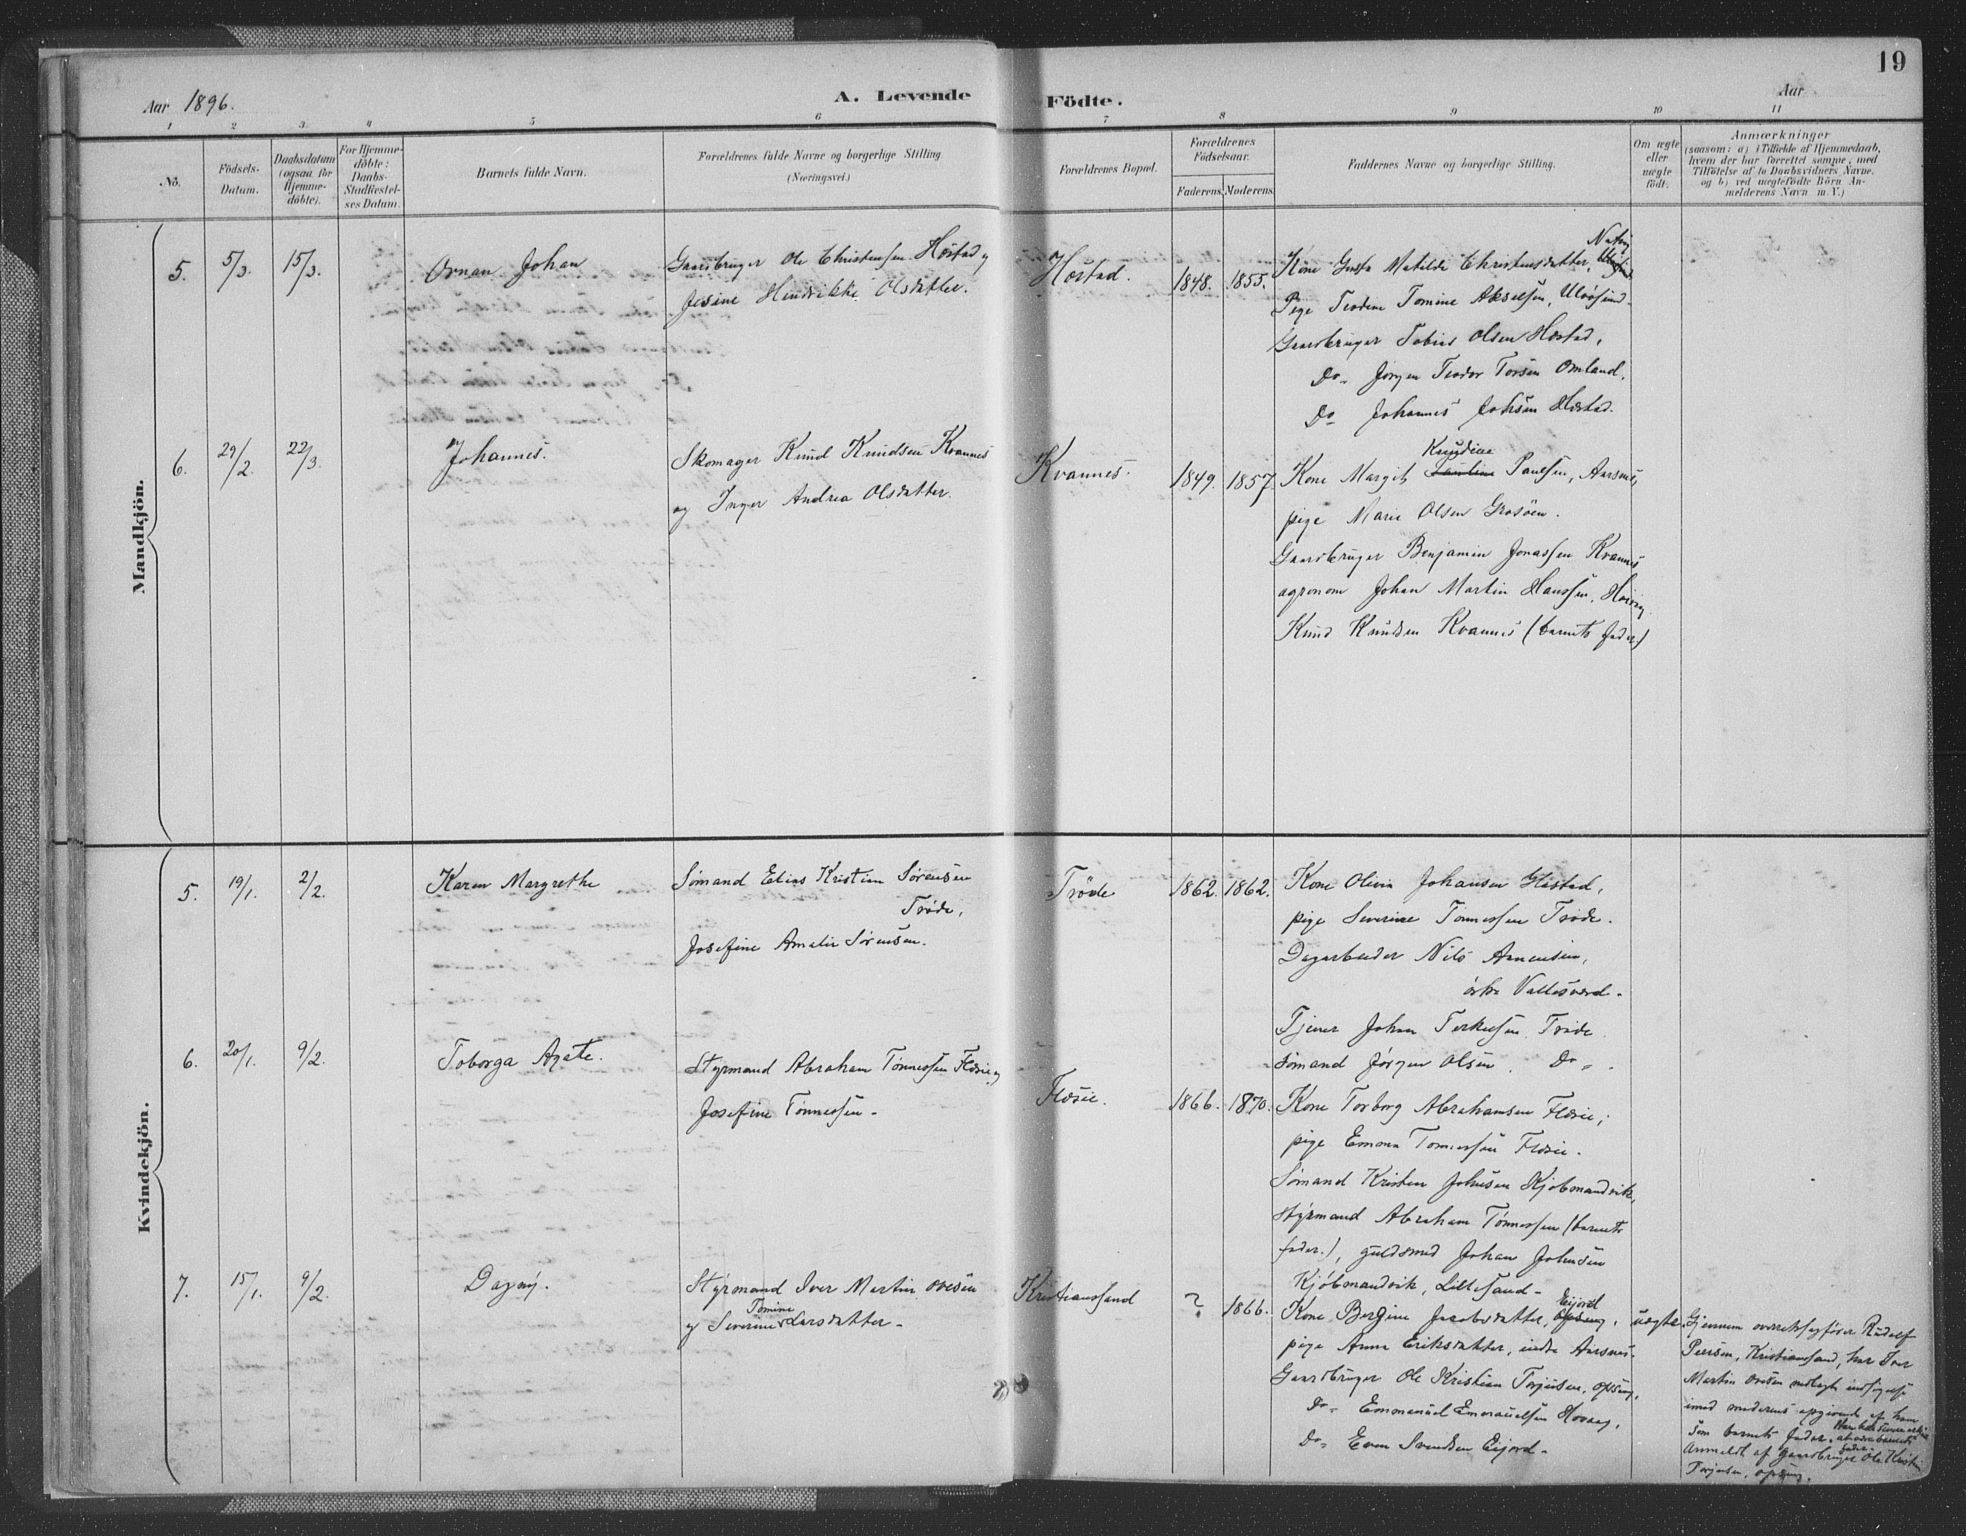 19
Aar 1896.
A. Levende Födte.
Aar
1 2 3 4 5 6 7 8 9 10 11
No.
Födsels-Datum.
Daabsdatum (ogsaa for Hjemme-döbte).
For Hjemme-döbte: Daabs-Stadfæstel-ses Datum.
Barnets fulde Navn.
Forældrenes fulde Navne og borgerlige Stilling (Næringsvei.)
Forældrenes Bopæl.
Forældrenes Födselsaar.
Faderens. Moderens.
Faddernes Navne og borgerlige Stilling.
Om ægte eller uægte födt.
Anmærkninger
(saasom: a) i Tilfælde af Hjemmedaab,
hvem der har forrettet samme, med
Tilföielse af to Daabsvidners Navne,
og b) ved uægtefödte Börn An-
melderens Navn m. V.)
Mandkjön.
5. 5/3. 15/3. Ornan Johan
Gaardbruger Ole Christensen Hæstad og
Jesine Hendrikke Olsdatter.
Hæstad. 1848. 1855.
Kone Gusta Matilde Christensdatter,
Pige Teodine Tomine Akselsen, Ulvøsund
Gaardbruger Tobias Olsen Hæstad,
Do. Jørgen Teodor Torsen Omland.
Do Johannes Johsen Hæstad.
6. 29/2. 22/3. Johannes.
Skomager Knud Knudsen Kvannes
og Inger Andrea Olsdatter.
Kvannes. 1849. 1857
Knudine
Kone Margit Paulsen, Aarsnes,
pige Marie Olsen Grosøen.
Gaardbruger Benjamin Jonassen Kvannes
agronom Johan Martin Hanssen, Høvåg
Knud Knudsen Kvannes (barnets fader)
Kvindekjön.
5. 19/1. 2/2. Karen Margrethe
Sømand Elias Kristian Sørensen
Trøde,
Josefine Amalie Sørensen.
Trøde 1862. 1862.
Kone Olivia Johansen Hæstad,
pige Severine Tønnessen Trøde.
Dagarbeider Nils Arnensen,
østre Vallesværd.
Tjener Johan Terkelsen Trøde
Sømand Jørgen Olsen. Do.
6. 20/1. 9/2. Toborga Agate.
Styrmand Abraham Tønnessen Flørie og
Josefine Tønnessen.
Flørie. 1866. 1870.
Kone Torborg Abrahamsen Flørie;
pige Emma Tønnessen Flørie.
Sømand Kristen Johnsen Kjøbmandvik,
Styrmand Abraham Tønnessen (barnets
fader.), guldsmed Johan Johnsen
Kjøbmandvik, Lillesand.
7. 15/1. 9/2. Dagny.
Styrmand Iver Martin Ovesen
Tomine
og Severine Larsdatter.
Kristianssand ? 1866.
Eijord
Kone Bergine Jacobsdatter,
pige Anna Eriksdatter, indre Aarsnes.
Gaardbruger Ole Kristian Terjesen, Opseng,
Do. Emmanuel Emanuelsen Hovaag,
Do. Even Svendsen Eijord.
uægte.
Gjennem overretssagfører Rudolf
Peersen, Kristianssand, har Iver
Martin Ovesen nedlagt indsigelse
imod moderens opgivende af ham
som barnets fader.
Anmeldt af gaardbruger Ole Kristian
Terjesen, Opseng.